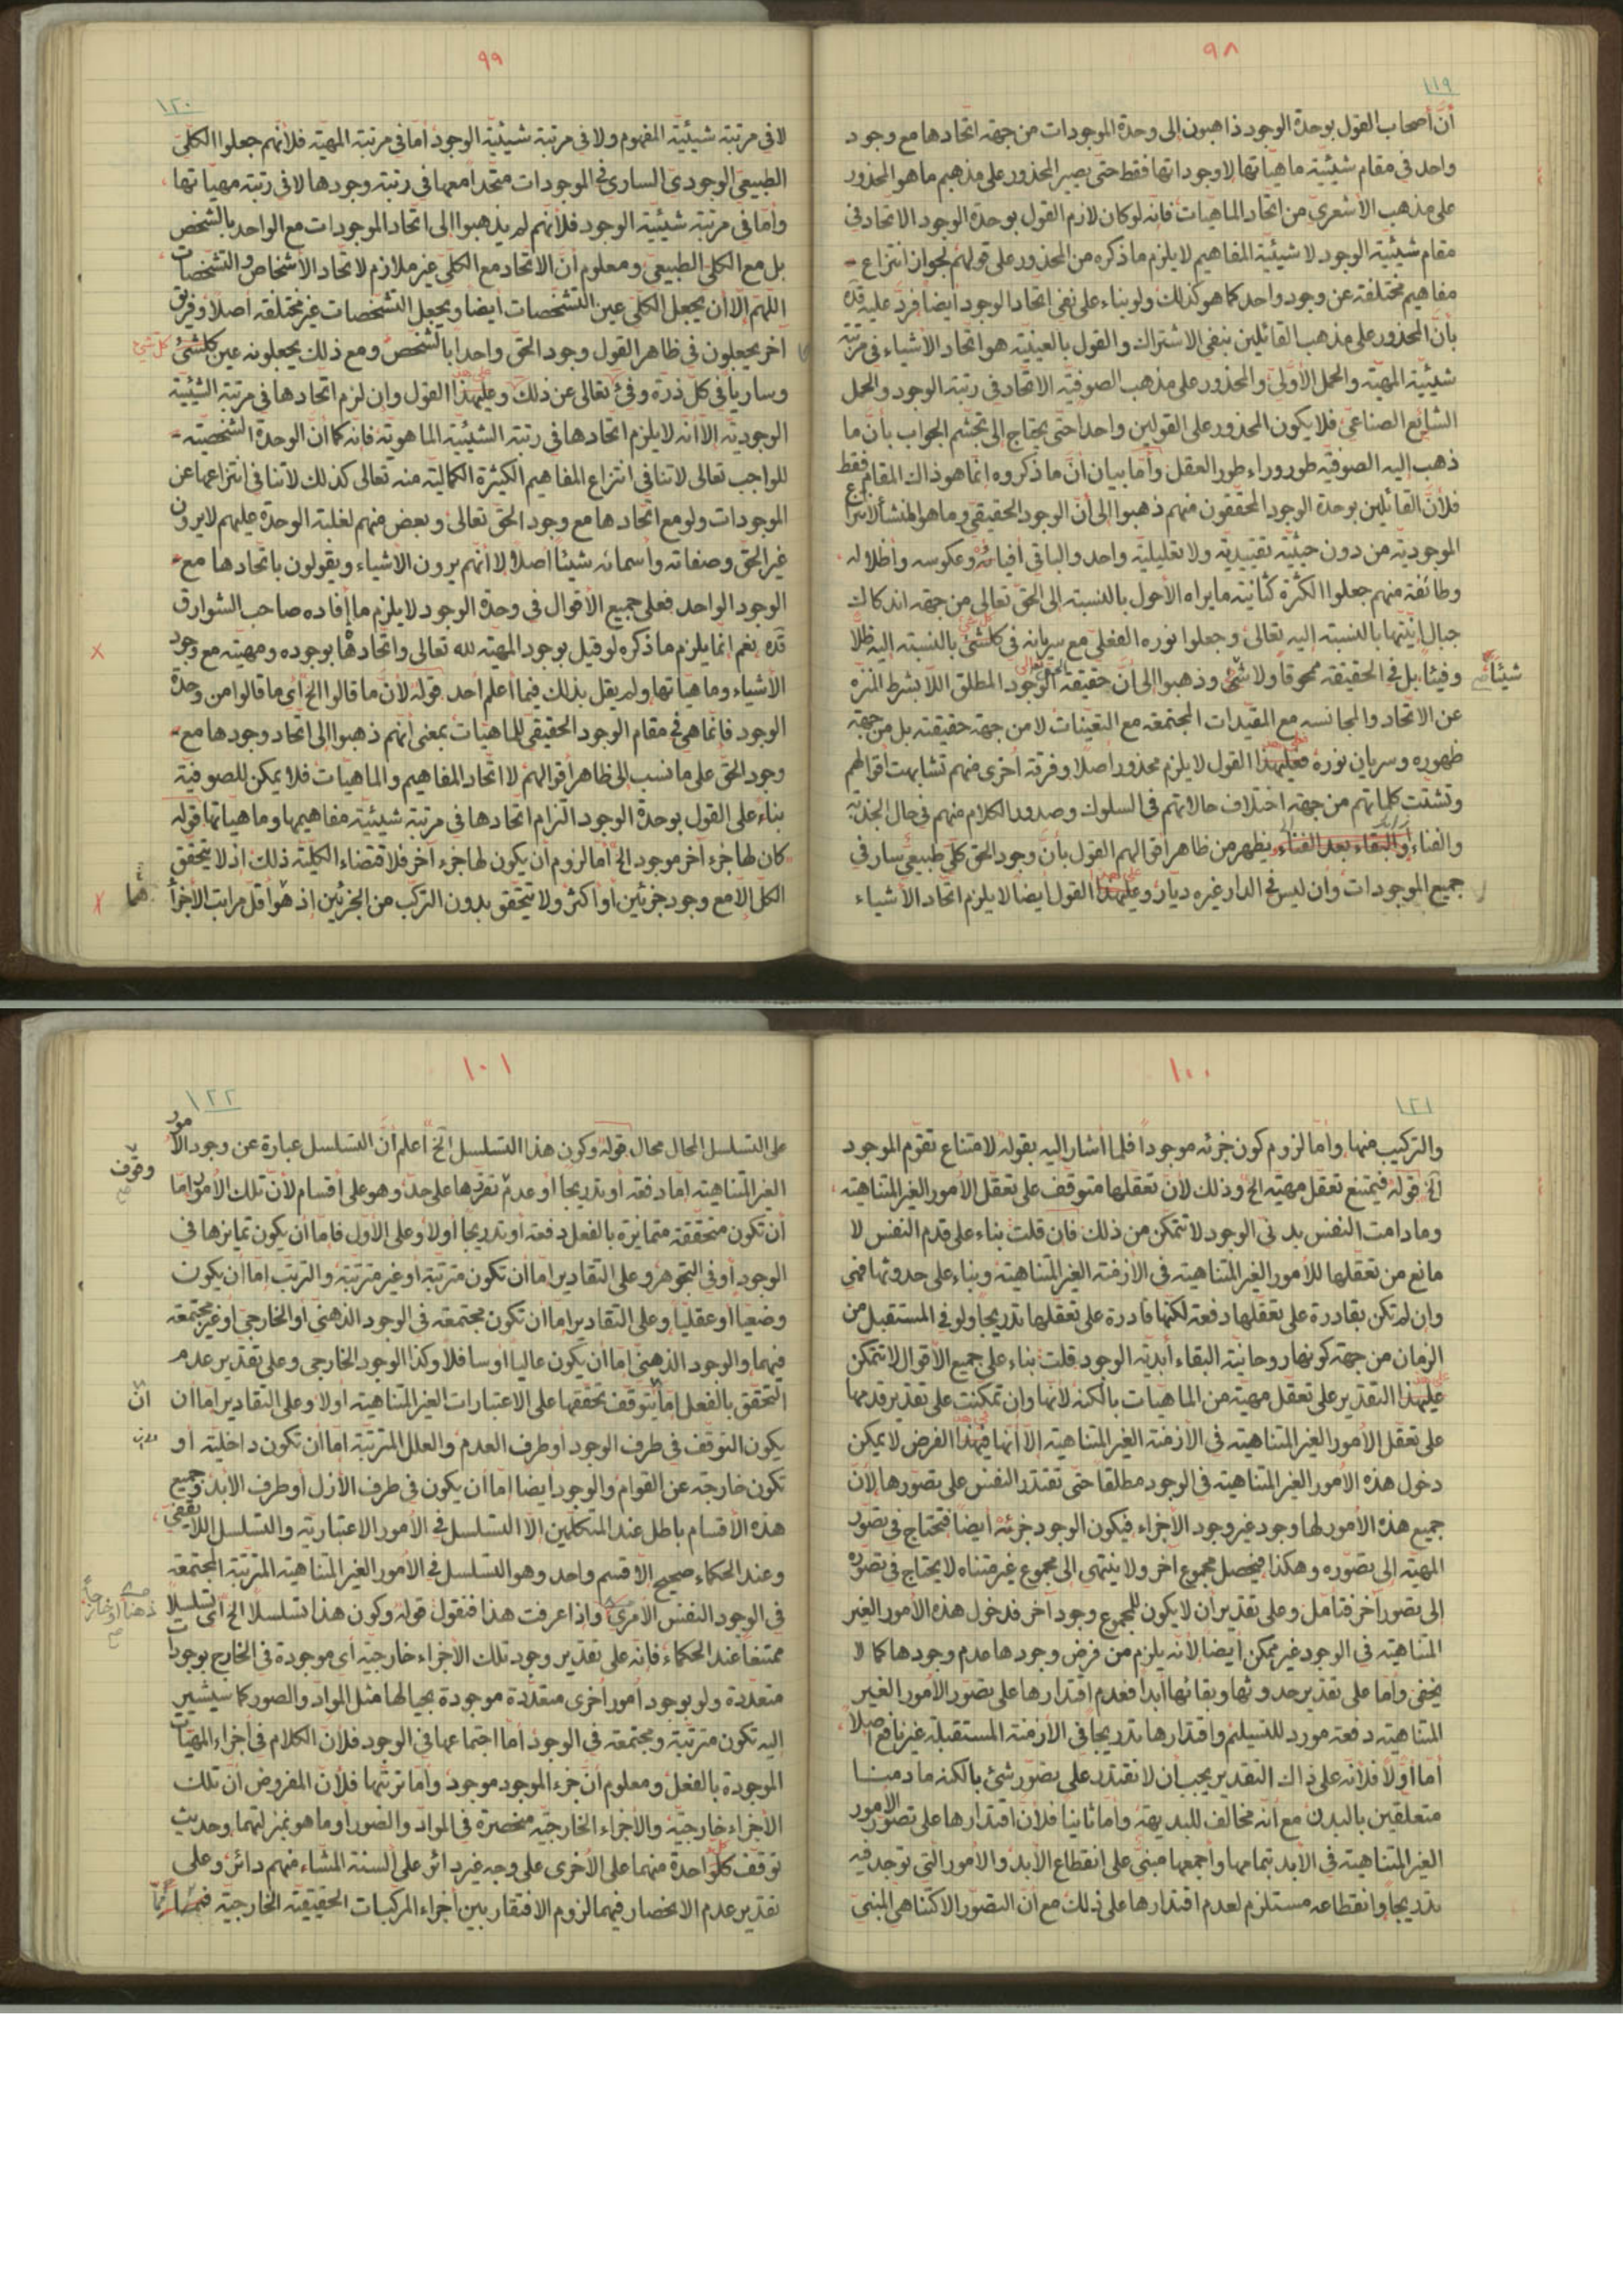 ٩٨
١١٩
أنّ أصحاب القول بوحدة الوجود ذاهبون إلى وحدة الموجودات من جهة اتحادها مع وجود
واحد في مقام شيئيّة ماهياتها لاوجوداتها فقط حتى يصير المحذور على مذهبهم ماهو المحذور
على مذهب الأشعري من اتحاد الماهيات فانه لوكان لازم القول بوحدة الوجود الاتحاد في
مقام شيئيّة الوجود لاشيئيّة المفاهيم لايلزم ماذكره من المحذور على قولهم لجواز انتزاع
مفاهيم مختلفة عن وجود واحد كما هو كذلك ولو بناء على نفي اتحاد الوجود أيضا فردّ عليه قدّه
بأنّ المحذور على مذهب القائلين بنفي الاشتراك والقول بالعينيّة هو اتحاد الأشياء في مرتبة
شيئيّة المهيّة والحمل الأوّلى والمحذور على مذهب الصوفيّة الاتحاد في رتبة الوجود والحمل
الشايع الصناعي فلايكون المحذور على القولين واحدا حتى يحتاج إلى تجشّم الجواب بأنّ ما
ذهب إليه الصوفيّة طور وراء طور العقل وأمّا بيان أنّ ماذكروه انما هو ذاك المقام فقط
فلأنّ القائلين بوحدة الوجود المحققون منهم ذهبوا إلى أنّ الوجود الحقيقي وماهو المنشأ لانتزاع
الموجوديّة من دون حيثيّة تقييديّة ولا تعليليّة واحد والباقي أفيائه وعكوسه وأظلاله
وطائفة منهم جعلوا الكثرة كثانية مايراه الأحول بالنسبة إلى الحقّ تعالى من جهة اندكاك
جبال إنيّتها بالنسبة إليه تعالى وجعلوا نوره الفعلي مع سريانه في كلشئ بالنسبة إليه ظلّا
وفيئا بل في الحقيقة ممحوقا ولا شئ وذهبوا إلى أنّ حقيقة الوجود المطلق اللابشرط المنزه
شيئاً
عن الاتحاد والمجانسة مع المقيدات المجتمعة مع التعينات لامن جهة حقيقته بل من جهة
ظهوره وسريان نوره فعليهذا القول لايلزم محذور أصلا وفرقة أخرى منهم تشابهت أقوالهم
وتشتت كلماتهم من جهة اختلاف حالاتهم في السلوك وصدور الكلام منهم في حال الجذبة
والفناء أو البقاء بعد الفناء يظهر من ظاهر أقوالهم القول بأنّ وجود الحق كلي طبيعي سار في
جميع الموجودات وان ليس في الدار غيره ديّار وعليهذا القول أيضا لايلزم اتحاد الأشياء
٩٩
١٢٠
لا في مرتبة شيئيّة المفهوم ولا في مرتبة شيئيّة الوجود أمّا في مرتبة المهيّة فلأنهم جعلوا الكلّي
الطبيعي الوجودي الساري في الموجودات متحدا معها في رتبة وجودها لا في رتبة مهياتها
وأمّا في مرتبة شيئيّة الوجود فلأنهم لم يذهبوا إلى اتحاد الموجودات مع الواحد بالشخص
بل مع الكلي الطبيعي ومعلوم أنّ الاتحاد مع الكلي غير ملازم لاتحاد الأشخاص والتشخصات
اللهم الا أن يجعل الكلي عين التشخصات أيضا ويجعل التشخصات غير مختلفة أصلا وفريق
آخر يجعلون في ظاهر القول وجود الحق واحدا بالشخص ومع ذلك يجعلونه عين كلشئ
كل شئ
وساريا في كل ذرة وفئ تعالى عن ذلك وعليهذا القول وان لزم اتحادها في مرتبة الشيئيّة
الوجوديّة الا أنه لايلزم اتحادها في رتبة الشيئيّة الماهويّة فانه كما أن الوحدة الشخصيّة
للواجب تعالى لاتنافي انتزاع المفاهيم الكثيرة الكماليّة منه تعالى كذلك لاتنافي انتزاعها عن
الموجودات ولو مع اتحادها مع وجود الحق تعالى وبعض منهم لغلبة الوحدة عليهم لايرون
غير الحق وصفاته وأسمائه شيئا أصلا لا أنهم يرون الأشياء ويقولون باتحادها مع
الوجود الواحد فعلى جميع الأقوال في وحدة الوجود لايلزم ما أفاده صاحب الشوارق
قدّه نعم انما يلزم ماذكره لو قيل بوجود المهيّة لله تعالى واتحادها بوجوده ومهيته مع وجود
الأشياء وماهياتها ولم يقل بذلك فيما أعلم أحد قوله لأن ماقالوا الخ أي ماقالوا من وحدة
الوجود فانما هي في مقام الوجود الحقيقي للماهيات بمعنى أنهم ذهبوا إلى اتحاد وجودها مع
وجود الحق على مانسب إلى ظاهر أقوالهم لا اتحاد المفاهيم والماهيات فلا يمكن للصوفيّة
بناء على القول بوحدة الوجود التزام اتحادها في مرتبة شيئيّة مفاهيمها وماهياتها قوله
كان لها جزء آخر موجود الخ أما لزوم أن يكون لها جزء آخر فلاقتضاء الكليّة ذلك إذ لا يتحقق
الكل الا مع وجود جزئين أو أكثر ولا يتحقق بدون التركب من الجزئين إذ هو أقل مراتب الأجزا
هما
١٠٠
١٢١
والتركيب منها وأما لزوم كون جزئه موجودا فلما أشار إليه بقوله لامتناع تقوّم الموجود
الخ قوله فيمتنع تعقل مهيّة الخ وذلك لأن تعقلها متوقف على تعقل الأمور الغير المتناهية
ومادامت النفس بدني الوجود لاتتمكن من ذلك فان قلت بناء على قدم النفس لا
مانع من تعقلها للأمور الغير المتناهية في الأزمنة الغير المتناهية وبناء على حدوثها فهي
وان لم تكن بقادرة على تعقلها دفعة لكنها قادرة على تعقلها تدريجا ولو في المستقبل من
الزمان من جهة كونها روحانيّة البقاء أبديّة الوجود قلت بناء على جميع الأقوال لاتتمكن
عليهذا التقدير على تعقل مهيّة من الماهيات بالكنه لأنها وان تمكنت على تقدير قدمها
على تعقل الأمور الغير المتناهية في الأزمنة الغير المتناهية الا أنها فيهذا الفرض لايمكن
دخول هذه الأمور الغير المتناهية في الوجود مطلقا حتى تقتدر النفس على تصورها لأنّ
جميع هذه الأمور لها وجود غير وجود الأجزاء فيكون الوجود جزئه أيضا فتحتاج في تصور
المهيّة إلى تصوره وهكذا فيحصل مجموع آخر ولا ينتهي إلى مجموع غير متناه لايحتاج في تصوره
إلى تصور آخر فتأمل وعلى تقدير أن لايكون للمجموع وجود آخر فدخول هذه الأمور الغير
المتناهية في الوجود غير ممكن أيضا لأنه يلزم من فرض وجودها عدم وجودها كما لا
يخفى وأما على تقدير حدوثها وبقائها أبدا فعدم اقتدارها على تصور الأمور الغير
المتناهية دفعة مورد للتسليم واقتدارها تدريجا في الأزمنة المستقبلة غير نافع أصلا
أما أولا فلأنه على ذاك التقدير يجب أن لاتقتدر على تصور شئ بالكنه مادمنا
متعلقين بالبدن مع أنه مخالف للبديهة وأما ثانيا فلأن اقتدارها على تصور الأمور
الغير المتناهية في الأبد بتمامها وأجمعها مبني على انقطاع الأبد والأمور التي توجد فيه
تدريجا وانقطاعه مستلزم لعدم اقتدارها على ذلك مع أن التصور الاكتناهي المبني
١٠١
١٢٢
على التسلسل المحال محال قوله وكون هذا التسلسل الخ اعلم أنّ التسلسل عبارة عن وجود الأمور
الغير المتناهية اما دفعة أو تدريجا أو عدم تقررها على حدّ وهو على أقسام لأن تلك الأمور اما
وقوف
أن تكون متحققة متمايزة بالفعل دفعة أو تدريجا أولا وعلى الأول فاما أن يكون تمايزها في
الوجود أو في التجوهر وعلى التقادير اما أن تكون مترتبة أو غير مترتبة والترتب اما أن يكون
وضعيا أو عقليا وعلى التقادير اما أن تكون مجتمعة في الوجود الذهني أو الخارجي أو غير مجتمعة
فيهما والوجود الذهني اما أن يكون عاليا أو سافلا وكذا الوجود الخارجي وعلى تقدير عدم
التحقق بالفعل اما يتوقف تحققها على الاعتبارات الغير المتناهية أولا وعلى التقادير اما أن
أن
يكون التوقف في طرف الوجود أو طرف العدم والعلل المترتبة اما أن تكون داخلية أو
تكون خارجة عن القوام والوجود أيضا اما أن يكون في طرف الأزل أو طرف الأبد وجميع
هذه الأقسام باطل عند المتكلمين الا التسلسل في الأمور الاعتبارية والتسلسل اللايقفي
وعند الحكماء صحيح الا قسم واحد وهو التسلسل في الأمور الغير المتناهية المترتبة المجتمعة
في الوجود النفس الأمري وإذا عرفت هذا فنقول قوله وكون هذا تسلسلا الخ أي تسلسلا
ذهنا أو خارجاً
ممتنعا عند الحكماء فانه على تقدير وجود تلك الأجزاء خارجيّة أي موجودة في الخارج بوجودات
متعددة ولو بوجود أمور أخرى متعددة موجودة بحيالها مثل المواد والصور كما سيشير
إليه تكون مترتبة ومجتمعة في الوجود أما اجتماعها في الوجود فلأن الكلام في أجزاء المهيات
الموجودة بالفعل ومعلوم أن جزء الموجود موجود وأما ترتبها فلأن المفروض أن تلك
الأجزاء خارجيّة والأجزاء الخارجيّة منحصرة في المواد والصور أو ماهو بمنزلتهما وحديث
توقف كل واحدة منهما على الأخرى على وجه غير دائر على ألسنة المشاء منهم دائر وعلى
تقدير عدم الانحصار فيهما لزوم الافتقار بين أجزاء المركبات الحقيقيّة الخارجيّة